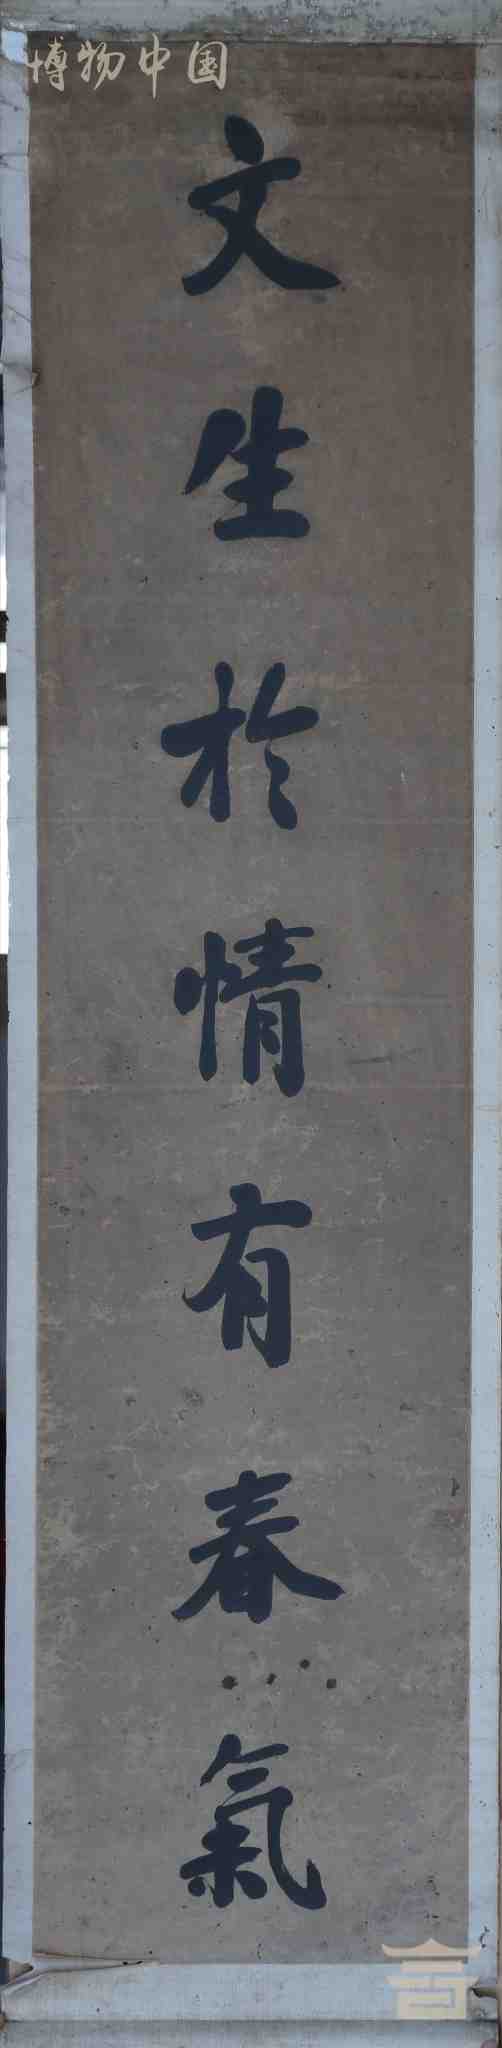 博物中国
文生於情有春氣